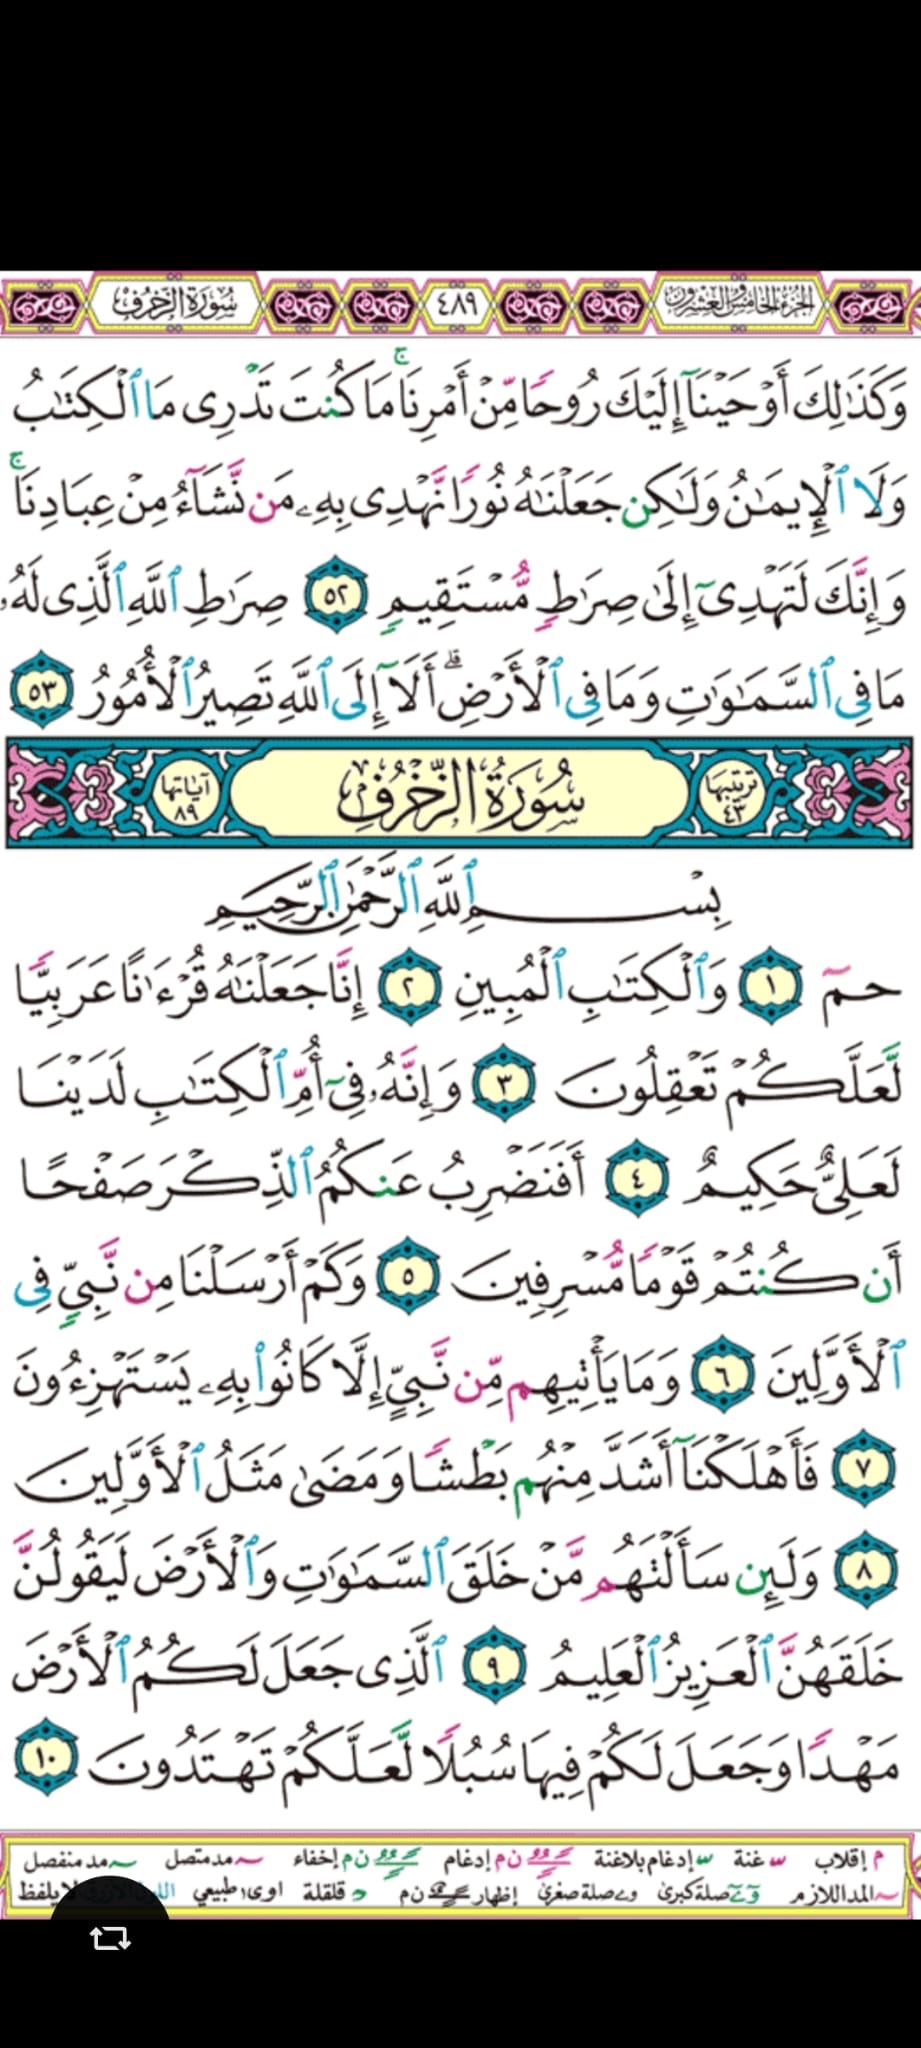 الجزء الخامس والعشرون ٤٨٩ سُورَةُ الزُّخْرُفِ
وَكَذَٰلِكَ أَوْحَيْنَآ إِلَيْكَ رُوحًا مِّنْ أَمْرِنَاۚ مَا كُنتَ تَدْرِى مَا ٱلْكِتَٰبُ
وَلَا ٱلْإِيمَٰنُ وَلَٰكِن جَعَلْنَٰهُ نُورًا نَّهْدِى بِهِۦ مَن نَّشَآءُ مِنْ عِبَادِنَاۚ
وَإِنَّكَ لَتَهْدِىٓ إِلَىٰ صِرَٰطٍ مُّسْتَقِيمٍ ٥٢ صِرَٰطِ ٱللَّهِ ٱلَّذِى لَهُۥ
مَا فِى ٱلسَّمَٰوَٰتِ وَمَا فِى ٱلْأَرْضِۗ أَلَآ إِلَى ٱللَّهِ تَصِيرُ ٱلْأُمُورُ ٥٣
ترتيبها ٤٣ سُورَةُ الزُّخْرُفِ آياتها ٨٩
بِسْمِ ٱللَّهِ ٱلرَّحْمَٰنِ ٱلرَّحِيمِ
حمٓ ١ وَٱلْكِتَٰبِ ٱلْمُبِينِ ٢ إِنَّا جَعَلْنَٰهُ قُرْءَٰنًا عَرَبِيًّا
لَّعَلَّكُمْ تَعْقِلُونَ ٣ وَإِنَّهُۥ فِىٓ أُمِّ ٱلْكِتَٰبِ لَدَيْنَا
لَعَلِىٌّ حَكِيمٌ ٤ أَفَنَضْرِبُ عَنكُمُ ٱلذِّكْرَ صَفْحًا
أَن كُنتُمْ قَوْمًا مُّسْرِفِينَ ٥ وَكَمْ أَرْسَلْنَا مِن نَّبِىٍّ فِى
ٱلْأَوَّلِينَ ٦ وَمَا يَأْتِيهِم مِّن نَّبِىٍّ إِلَّا كَانُوا۟ بِهِۦ يَسْتَهْزِءُونَ
٧ فَأَهْلَكْنَآ أَشَدَّ مِنْهُم بَطْشًا وَمَضَىٰ مَثَلُ ٱلْأَوَّلِينَ
٨ وَلَئِن سَأَلْتَهُم مَّنْ خَلَقَ ٱلسَّمَٰوَٰتِ وَٱلْأَرْضَ لَيَقُولُنَّ
خَلَقَهُنَّ ٱلْعَزِيزُ ٱلْعَلِيمُ ٩ ٱلَّذِى جَعَلَ لَكُمُ ٱلْأَرْضَ
مَهْدًا وَجَعَلَ لَكُمْ فِيهَا سُبُلًا لَّعَلَّكُمْ تَهْتَدُونَ ١٠
م إقلاب غنة إدغام بلاغنة ن م إدغام ن م إخفاء مد متصل مد منفصل
المد اللازم صلة كبرى صلة صغرى إظهار ن م قلقلة اوى طبيعي لا يلفظ